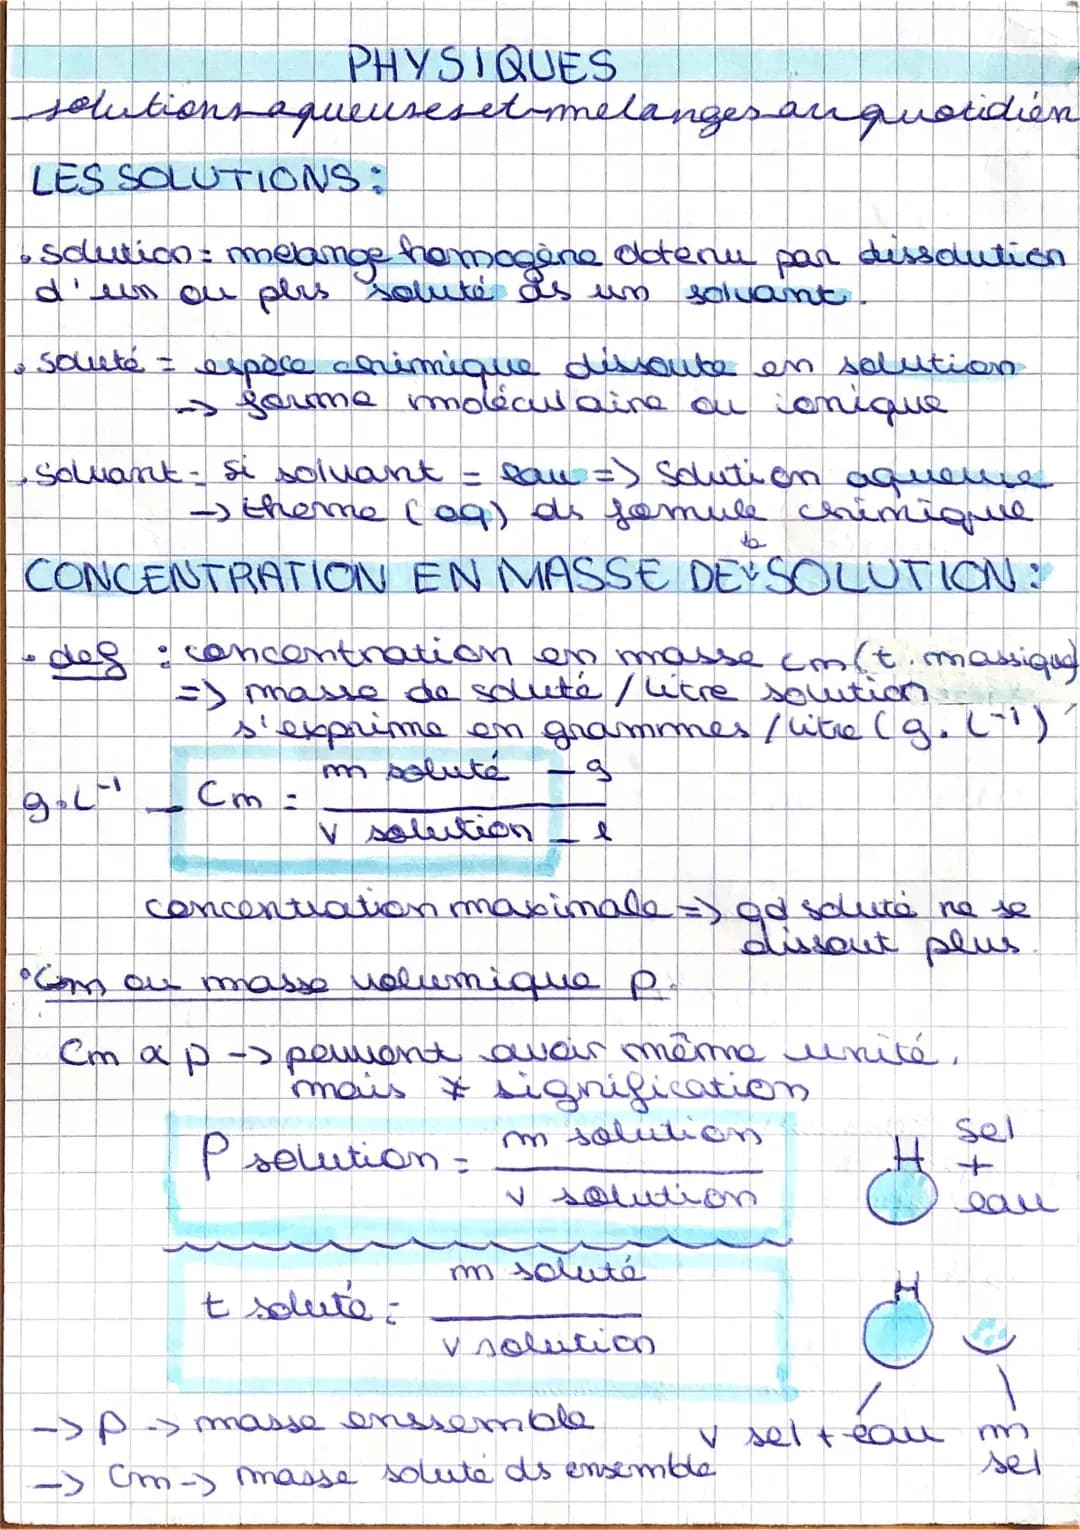 PHYSIQUES
solutions aqueuses et mélanges au quotidien
LES SOLUTIONS :
• solution = mélange homogène obtenu par dissolution
d'un ou plrs soluté ds un solvant.
• soluté = espèce chimique dissoute en solution
-> forme moléculaire ou ionique
• solvant = si solvant = eau => solution aqueuse
-> therme (aq) ds formule chimique
CONCENTRATION EN MASSE DE la SOLUTION :
• def : concentration en masse cm (t. massique)
=> masse de soluté / litre solution
s'exprime en grammes / litre (g. L⁻¹)
m soluté - g
g.L⁻¹ - Cm =
v solution - l
concentration maximale => qd soluté ne se
dissout plus.
• Cm ou masse volumique ρ.
Cm & ρ -> peuvent avoir même unité,
mais ≠ signification
ρ solution = m solution
v solution
sel
+
eau
t soluté = m soluté
v solution
-> ρ -> masse enssemble
v sel + eau m
sel
-> Cm -> masse soluté ds ensemble